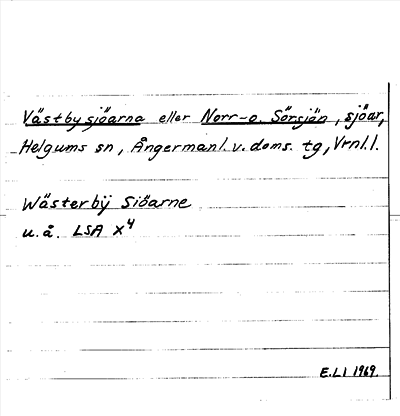 Västbysjöarna eller Norr- o. Sörsjön, sjöar,
Helgums sn, Ångermanl. v. doms. tg, Vrnl.l.
Wästerbÿ Siöarne
u.å. LSA X4
E.LI 1969.